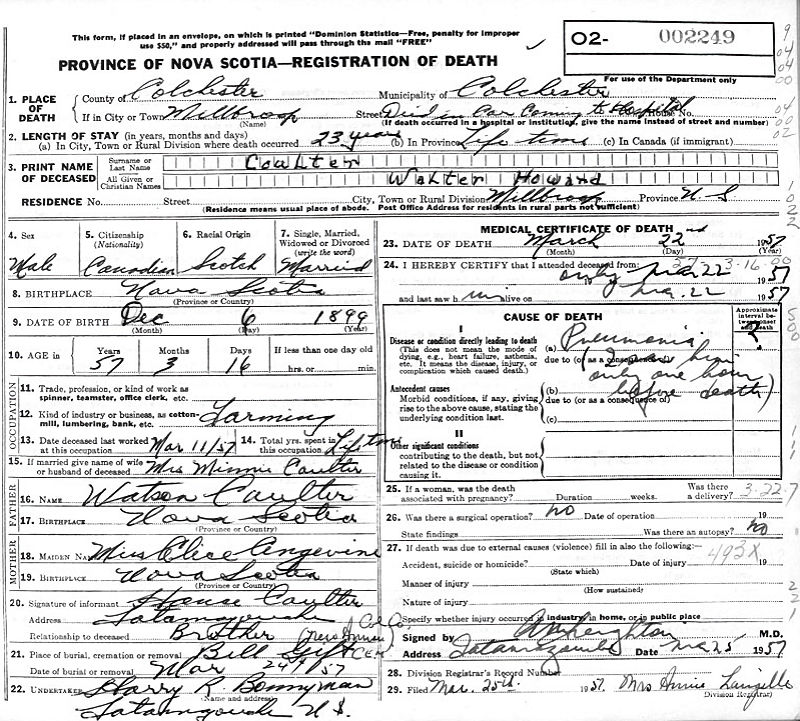 This form, if placed in an envelope, on which is printed "Dominion Statistics—Free, penalty for improper
use $50," and properly addressed will pass through the mail "FREE"
02- 002249
PROVINCE OF NOVA SCOTIA—REGISTRATION OF DEATH
For use of the Department only
1. PLACE OF DEATH
County of Colchester Municipality of Colchester
If in City or Town Street Died in Car Coming to Hospital House No.
(Name) (If death occurred in a hospital or institution, give the name instead of street and number)
2. LENGTH OF STAY (in years, months and days)
(a) In City, Town or Rural Division where death occurred 23 years (b) In Province Life time (c) In Canada (if immigrant)
3. PRINT NAME OF DECEASED
Surname or Last Name Coulter
All Given or Christian Names Walter Howard
RESIDENCE No. Street City, Town or Rural Division Province N S
(Residence means usual place of abode. Post Office Address for residents in rural parts not sufficient)
4. Sex
Male
5. Citizenship
(Nationality)
Canadian
6. Racial Origin
Scotch
7. Single, Married, Widowed or Divorced
(write the word)
Married
8. BIRTHPLACE Nova Scotia
(Province or Country)
9. DATE OF BIRTH Dec 6 1899
(Month) (Day) (Year)
10. AGE in Years Months Days If less than one day old
57 3 16 hrs. or min.
OCCUPATION
11. Trade, profession, or kind of work as spinner, teamster, office clerk, etc.
12. Kind of industry or business, as cotton-mill, lumbering, bank, etc. Farming
13. Date deceased last worked at this occupation Mar 11/57
14. Total yrs. spent in this occupation Lifetime
15. If married give name of wife or husband of deceased Mrs Minnie Coulter
FATHER
16. NAME Watson Coulter
17. BIRTHPLACE Nova Scotia
(Province or Country)
MOTHER
18. MAIDEN NAME Miss Alice Angevine
19. BIRTHPLACE Nova Scotia
(Province or Country)
20. Signature of informant Coulter
Address Tatamagouche Col Co
Relationship to deceased Brother (New Annan)
21. Place of burial, cremation or removal Cem
Date of burial or removal Mar 24th/57
22. UNDERTAKER Harry R. Bonnyman
(Name and address)
Tatamagouche N S.
MEDICAL CERTIFICATE OF DEATH
23. DATE OF DEATH March 22nd 1957
(Month) (Day) (Year)
24. I HEREBY CERTIFY that I attended deceased from:
37-3-16
only Mar 22 1957
and last saw him alive on Mar. 22 1957
CAUSE OF DEATH
Approximate interval between onset and death
I
Disease or condition directly leading to death
(This does not mean the mode of dying, e.g., heart failure, asthenia, etc. It means the disease, injury, or complication which caused death.)
(a) Pneumonia ?
due to (or as a consequence of)
(I saw him only one hour before death)
Antecedent causes
Morbid conditions, if any, giving rise to the above cause, stating the underlying condition last.
(b)
due to (or as a consequence of)
(c)
II
Other significant conditions
contributing to the death, but not related to the disease or condition causing it.
25. If a woman, was the death associated with pregnancy? Duration weeks. Was there a delivery? 3-22-7
26. Was there a surgical operation? NO Date of operation 19
State findings Was there an autopsy? NO
27. If death was due to external causes (violence) fill in also the following:—
493X
Accident, suicide or homicide? Date of injury 19
(State which)
Manner of injury
(How sustained)
Nature of injury
Specify whether injury occurred in industry, in home, or in public place
Signed by M.D.
Address Tatamagouche Date Mar 25 1957
28. Division Registrar's Record Number
29. Filed Mar. 25th. 1957. Mrs Annie
Division Registrar